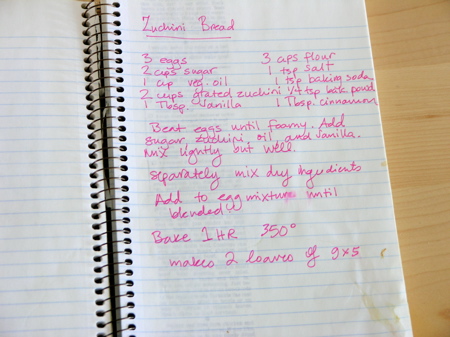 Zuchini Bread
3 eggs 3 cups flour
2 cups sugar 1 tsp salt
1 cup veg. oil 1 tsp baking soda
2 cups grated zuchini 1/4 tsp bak. powd
1 Tbsp. Vanilla 1 Tbsp. cinnamon
Beat eggs until foamy. Add
sugar, zuchini, oil, and vanilla.
Mix lightly but well.
Separately mix dry ingredients
Add to egg mixture until
blended
Bake 1 HR 350°
makes 2 loaves of 9x5